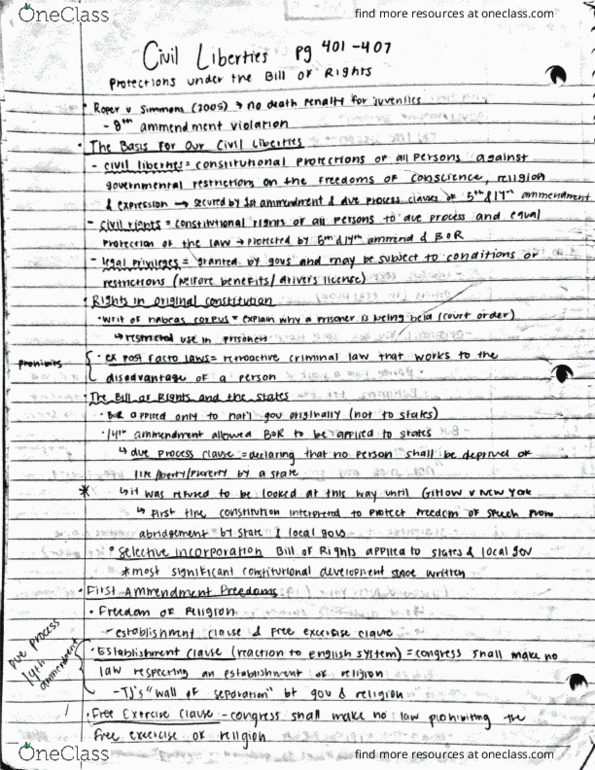 OneClass
find more resources at oneclass.com
Civil Liberties pg 401-407
Protections under the Bill of Rights
• Roper v Simmons (2005) → no death penalty for juveniles
- 8th ammendment violation
• The Basis for Our Civil Liberties
- civil liberties = constitutional protections of all persons against
governmental restrictions on the freedoms of conscience, religion
& expression → secured by 1st ammendment & due process clauses of 5th & 14th ammendment
- civil rights = constitutional rights of all persons to due process and equal
protection of the law → protected by 5th & 14th ammend & BOR
- legal privileges = granted by govs and may be subject to conditions or
restrictions (welfare benefits/ drivers license)
• Rights in original constitution
• writ of habeas corpus = explain why a prisoner is being held (court order)
↳ use in prisoners
prohibits
• ex post facto laws = retroactive criminal law that works to the
disadvantage of a person
• The Bill of Rights and the states
• BOR applied only to nat'l gov originally (not to states)
• 14th ammendment allowed BOR to be applied to states
↳ due process clause = declaring that no person shall be deprived of
life/liberty/property by a state
* ↳ it was refused to be looked at this way until Gitlow v New York
↳ first time constitution interpreted to protect freedom of speech from
abridgement by state & local govs
• Selective incorporation Bill of Rights applied to states & local gov
*most significant constitutional development since written
• First Ammendment Freedoms
• Freedom of Religion
- establishment clause & free exercise clause
due process
14th
ammendment
• Establishment clause (reaction to English system) = congress shall make no
law respecting an establishment of religion
- TJ's "wall of separation" bt gov & religion
• Free Exercise Clause - congress shall make no law prohibiting the
free exercise of religion
OneClass
find more resources at oneclass.com